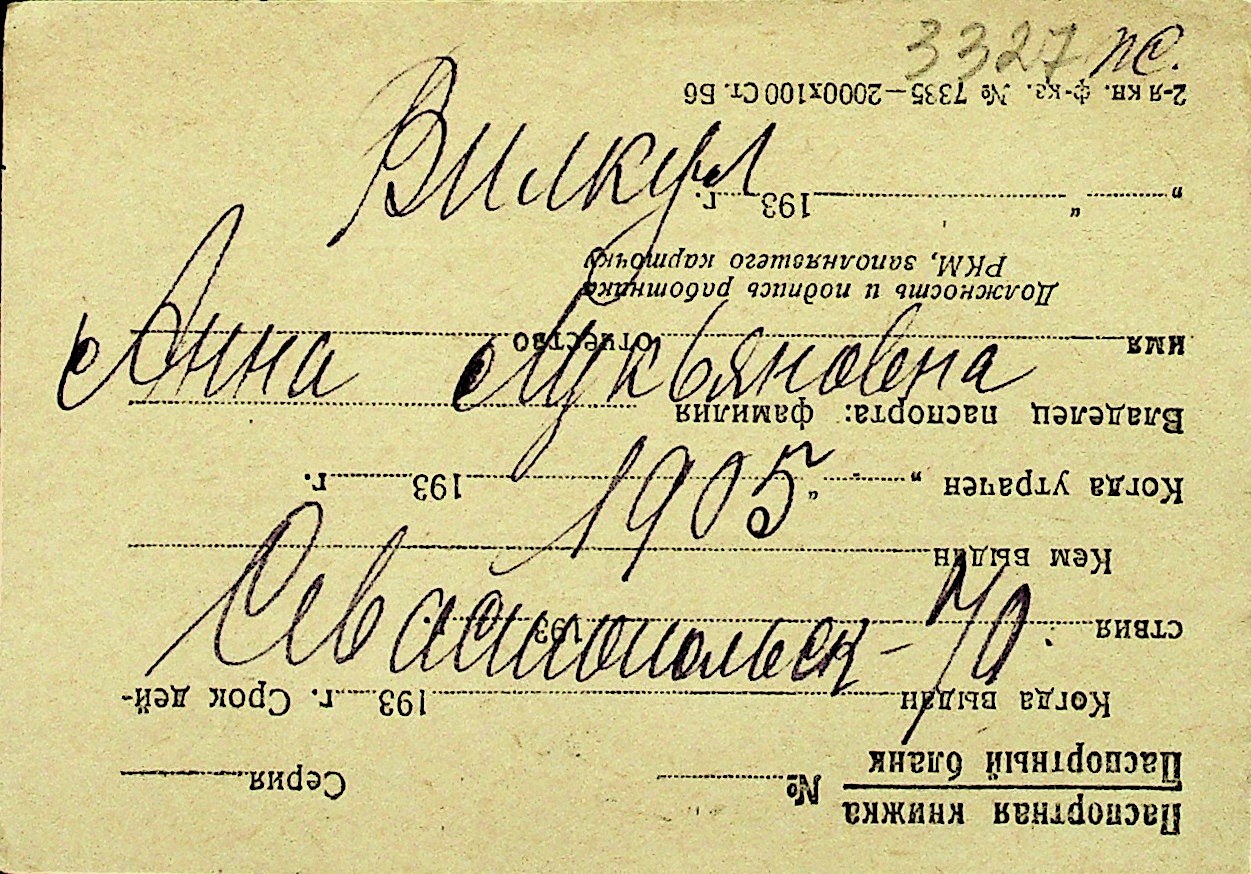 3327 ПС.
Вилкул
Анна Лукьяновна
1905
Севастопольск -
Паспортная книжка
Паспортный бланк № Серия
Когда выдан 193 г. Срок дей-
ствия 193 г.
Кем выдан
Когда утрачен „ “ 193 г.
Владелец паспорта: фамилия
имя отчество
Должность и подпись работника
РКМ, заполнявшего карточку
„ “ 193 г.
2-я кн. ф-ка. № 7335—2000х100 Ст. Б6